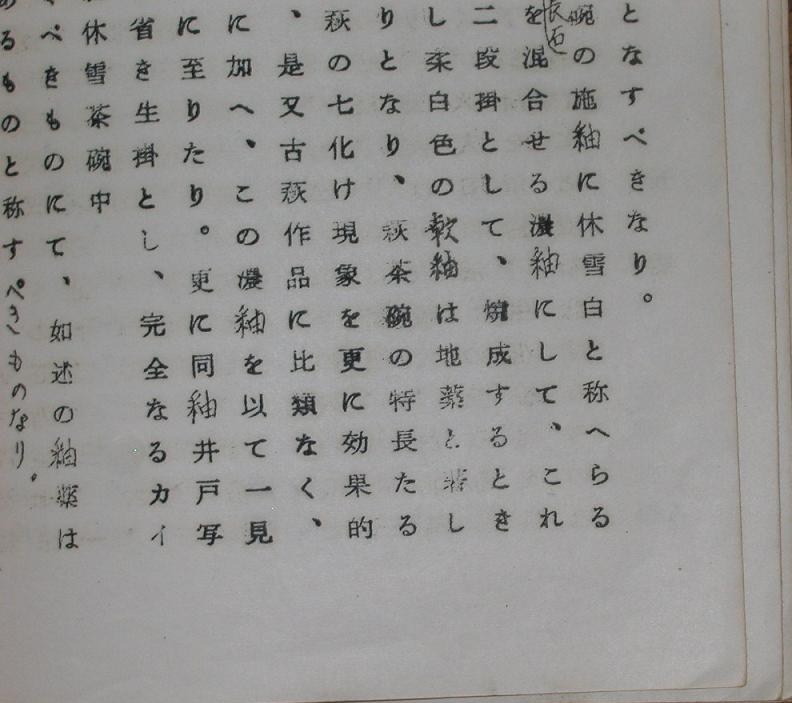 となすべきなり。
碗の施釉に休雪白と称へらる
を混合せる濃釉にして、これ
長石
二段掛として、焼成するとき
し柔白色の軟釉は地薬と し
りとなり、萩茶碗の特長たる
萩の七化け現象を更に効果的
、是又古萩作品に比類なく、
に加へ、この濃釉を以て一見
に至りたり。更に同釉井戸写
省き生掛とし、完全なるカイ
休雪茶碗中
べきものにて、如述の釉薬は
あるものと称すべきものなり。